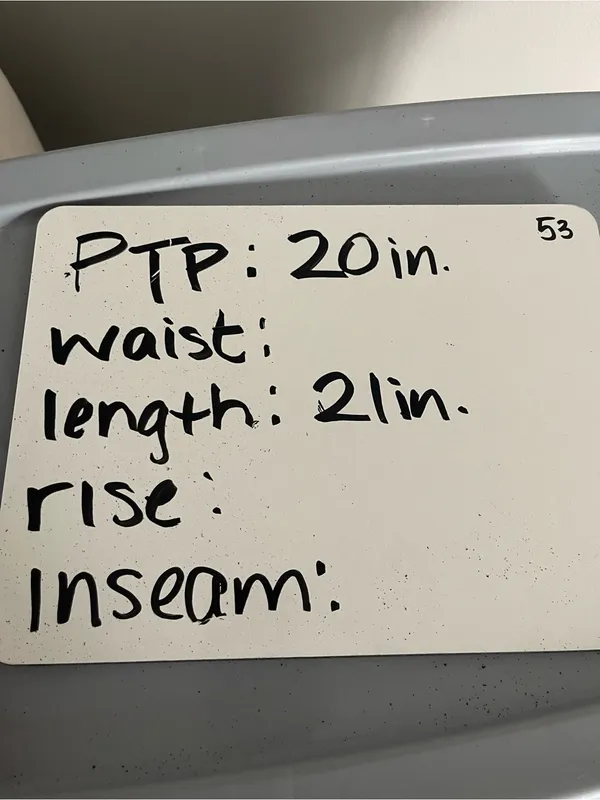 53
PTP: 20in.
waist:
length: 21in.
rise:
Inseam: